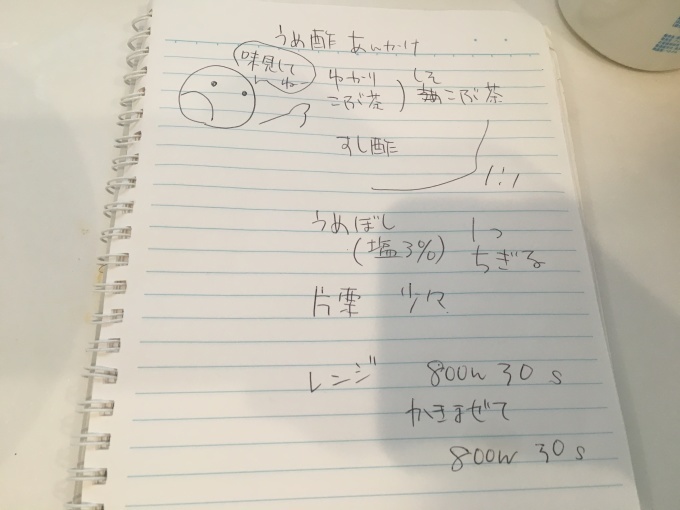 うめ酢 あんかけ
味見して
ね
ゆかり
こぶ茶
しそ
こぶ茶
すし酢
1:1
うめぼし
(塩3%)
1つ
ちぎる
片栗 少々
レンジ 800w 30s
かきまぜて
800w 30s